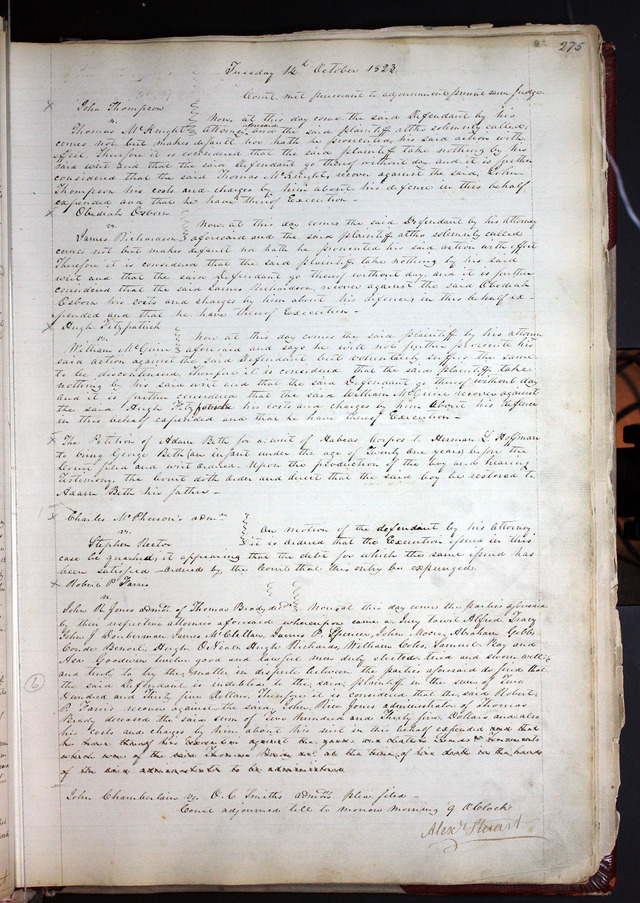 275
Tuesday 14th October 1823
Court met pursuant to adjournment present same Judge
John Thompson
vs.
Now at this day come the said Defendant by his
Thomas McKnight Attorney aforesaid and the said plaintiff altho solemnly called
comes not but makes default nor hath he prosecuted his said action with
effect Therefore it is considered that the said plaintiff take nothing by his
said writ and that the said Defendant go thereof without day and it is further
considered that the said Thomas McKnight recover against the said John
Thompson his costs and charges by him about his defence in this behalf
expended and that he have thereof Execution -
Obediah Osborn
vs.
Now at this day comes the said Defendant by his Attorney
James Richardson aforesaid and the said plaintiff altho solemnly called
comes not but makes default nor hath he prosecuted his said action with effect
Therefore it is considered that the said plaintiff take nothing by his said
writ and that the said Defendant go thereof without day, and it is further
considered that the said James Richardson, recover against the said Obediah
Osborn his costs and charges by him about his defence, in this behalf ex-
pended and that he have thereof Execution -
Hugh Fitzpatrick
vs.
Now at this day comes the said plaintiff by his attorney
William McGuire aforesaid and says he will not further prosecute his
said action against the said Defendant but voluntarily suffers the same
to be discontinued Therefore it is considered that the said plaintiff take
nothing by his said writ and that the said Defendant go thereof without day
and it is further considered that the said William McGuire recover against
the said Hugh Fitzpatrick his costs and charges by him about his Defence
in this behalf expended and that he have thereof Execution -
The Petition of Adam Beth for a writ of Habeas Corpus to Herman L Hoffman
to bring George Beth (an infant under the age of Twenty one years) before the
Court filed and writ ordered. Upon the production of the boy and hearing
Testimony, the Court doth order and direct that the said boy be restored to
Adam Beth his father -
Charles McPherson's admr
vs.
On motion of the defendant by his Attorney
Stephen Rector it is ordered that the Execution issued in this
case be quashed, it appearing that the debt for which the same issued has
been satisfied - ordered by the Court that this entry be expunged
Robert P Farris
vs.
John R Jones admr of Thomas Brady decd Now at this day come the parties aforesaid
by their respective attornies aforesaid whereupon came a Jury towit Alfred Tracy
John J Douberman James McClellan, James P. Spencer, John Moore, Abraham Gibbs
Condé Benoit, Hugh O'Neale Hugh Richards, William Coles, Samuel Ray and
Asa Goodwin twelve good and lawful men duly elected tried and sworn well
and truly to try the matter in dispute between the parties aforesaid do find that
the said Defendant is indebted to the said plaintiff in the sum of Two
Hundred and Thirty five Dollars, Therefore it is considered that the said Robert
P. Farris recover against the said John Rice Jones administrator of Thomas
Brady deceased the said sum of Two Hundred and Thirty five Dollars and also
his costs and charges by him about his suit in this behalf expended and that
he have thereof his Execution against the goods and chattels lands & tenements
which were of the said Thomas Brady at the time of his death in the hands
of the said administrator to be administered
John Chamberlain vs. O. C Smith's admors plea filed -
Court adjourned till to morrow morning 9 oClock
Alexr Stuart
6